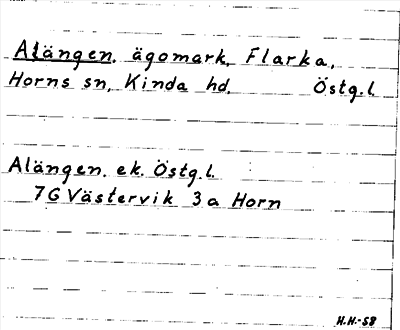 Alängen. ägomark, Flarka,
Horns sn, Kinda hd. Östg.l.
Alängen. ek. Östg.l.
7G Västervik 3a Horn
H.H.-58